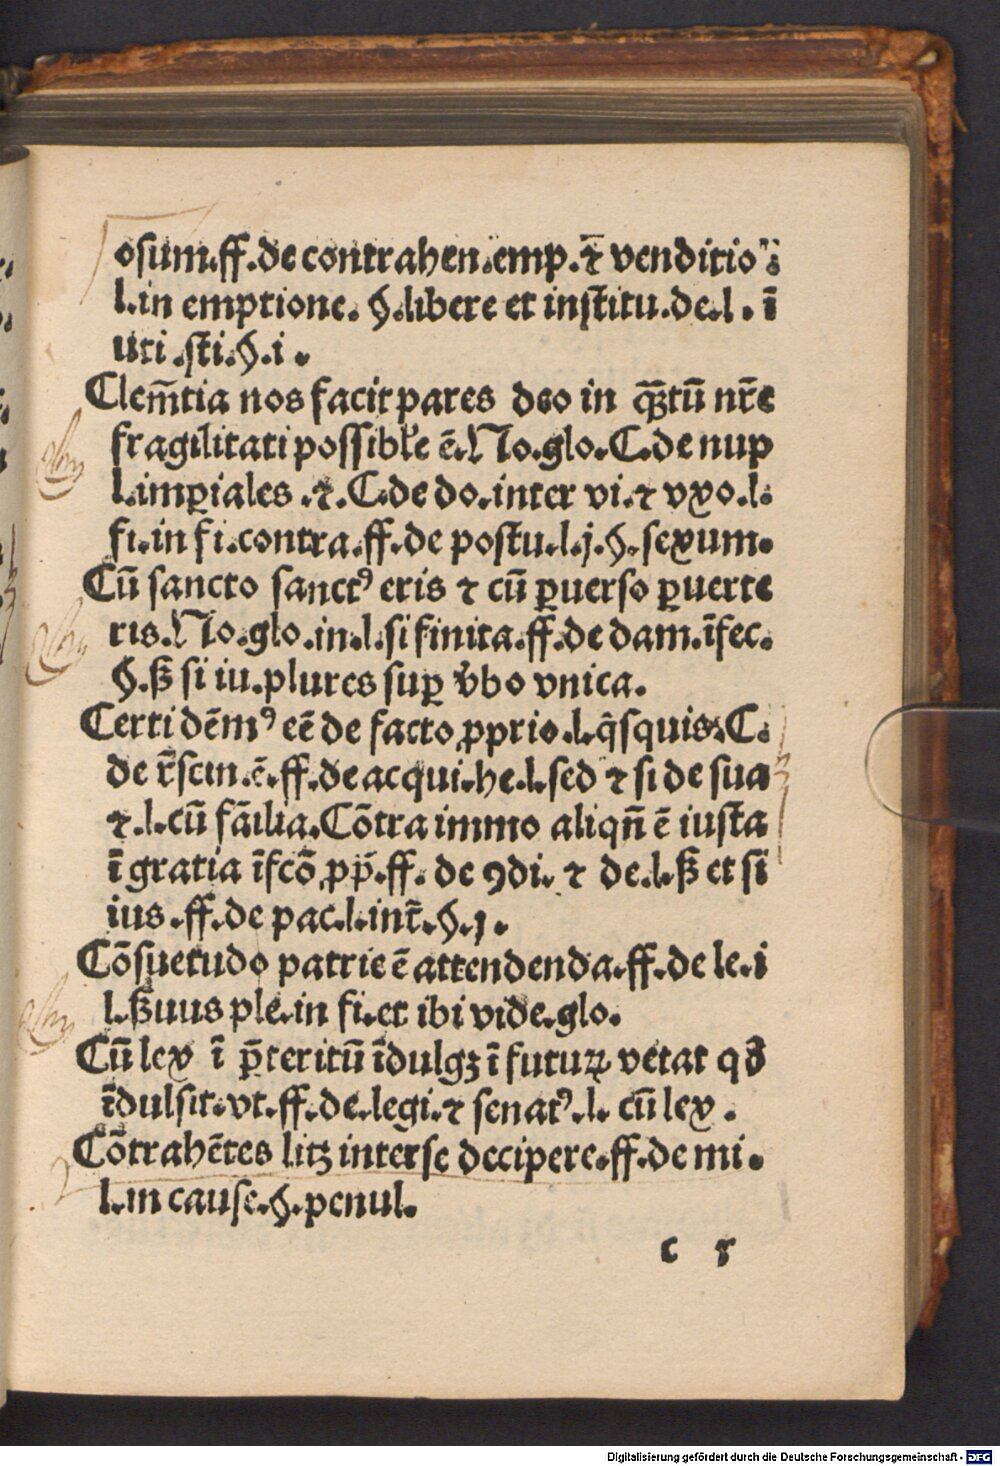 osum.ff.de contrahen.emp.⁊ venditio
l.in emptione. §.libere et institu.de.l. ī
uri .sti.§.i.
Clem̄tia nos facit pares deo in q̄ꝫtū nr̄e
fragilitati possibłe ē.No.glo.C.de nup
l.imꝑiales .⁊.C.de do.inter vi.⁊ vxo.l.
fi.in fi.contra.ff.de postu.l.j.§.sexum.
Cū sancto sanctꝰ eris ⁊ cū ꝑuerso ꝑuerte
ris.No.glo.in.l.si finita.ff.de dam.īfec.
§.ß si iu.plures suꝑ v̄bo vnica.
Certi dēmꝰ eē de facto ꝓprio.l.q̄squis.C.
de r̄scin.ē.ff.de acqui.he.l.sed ⁊ si de sua
⁊.l.cū fāilia.Cōtra immo aliqn̄ ē iusta
īgratia īfcō ꝓp̄.ff. de ꝯdi. ⁊ de.l.ß et si
ius .ff.de pac.l.int̄.§.j.
Cōsuetudo patrie ē attendenda.ff.de le.i
l.ßuus ple.in fi.et ibi vide.glo.
Cū lex ī p̄teritū īdulgꝫ ī futuꝝ vetat qð
īdulsit.vt.ff.de.legi.⁊ senatꝰ.l. cū lex .
Cōtrahētes litꝫ inter se decipere.ff.de mi.
l.in cause.§.penul.
c 5
Digitalisierung gefördert durch die Deutsche Forschungsgemeinschaft - DFG